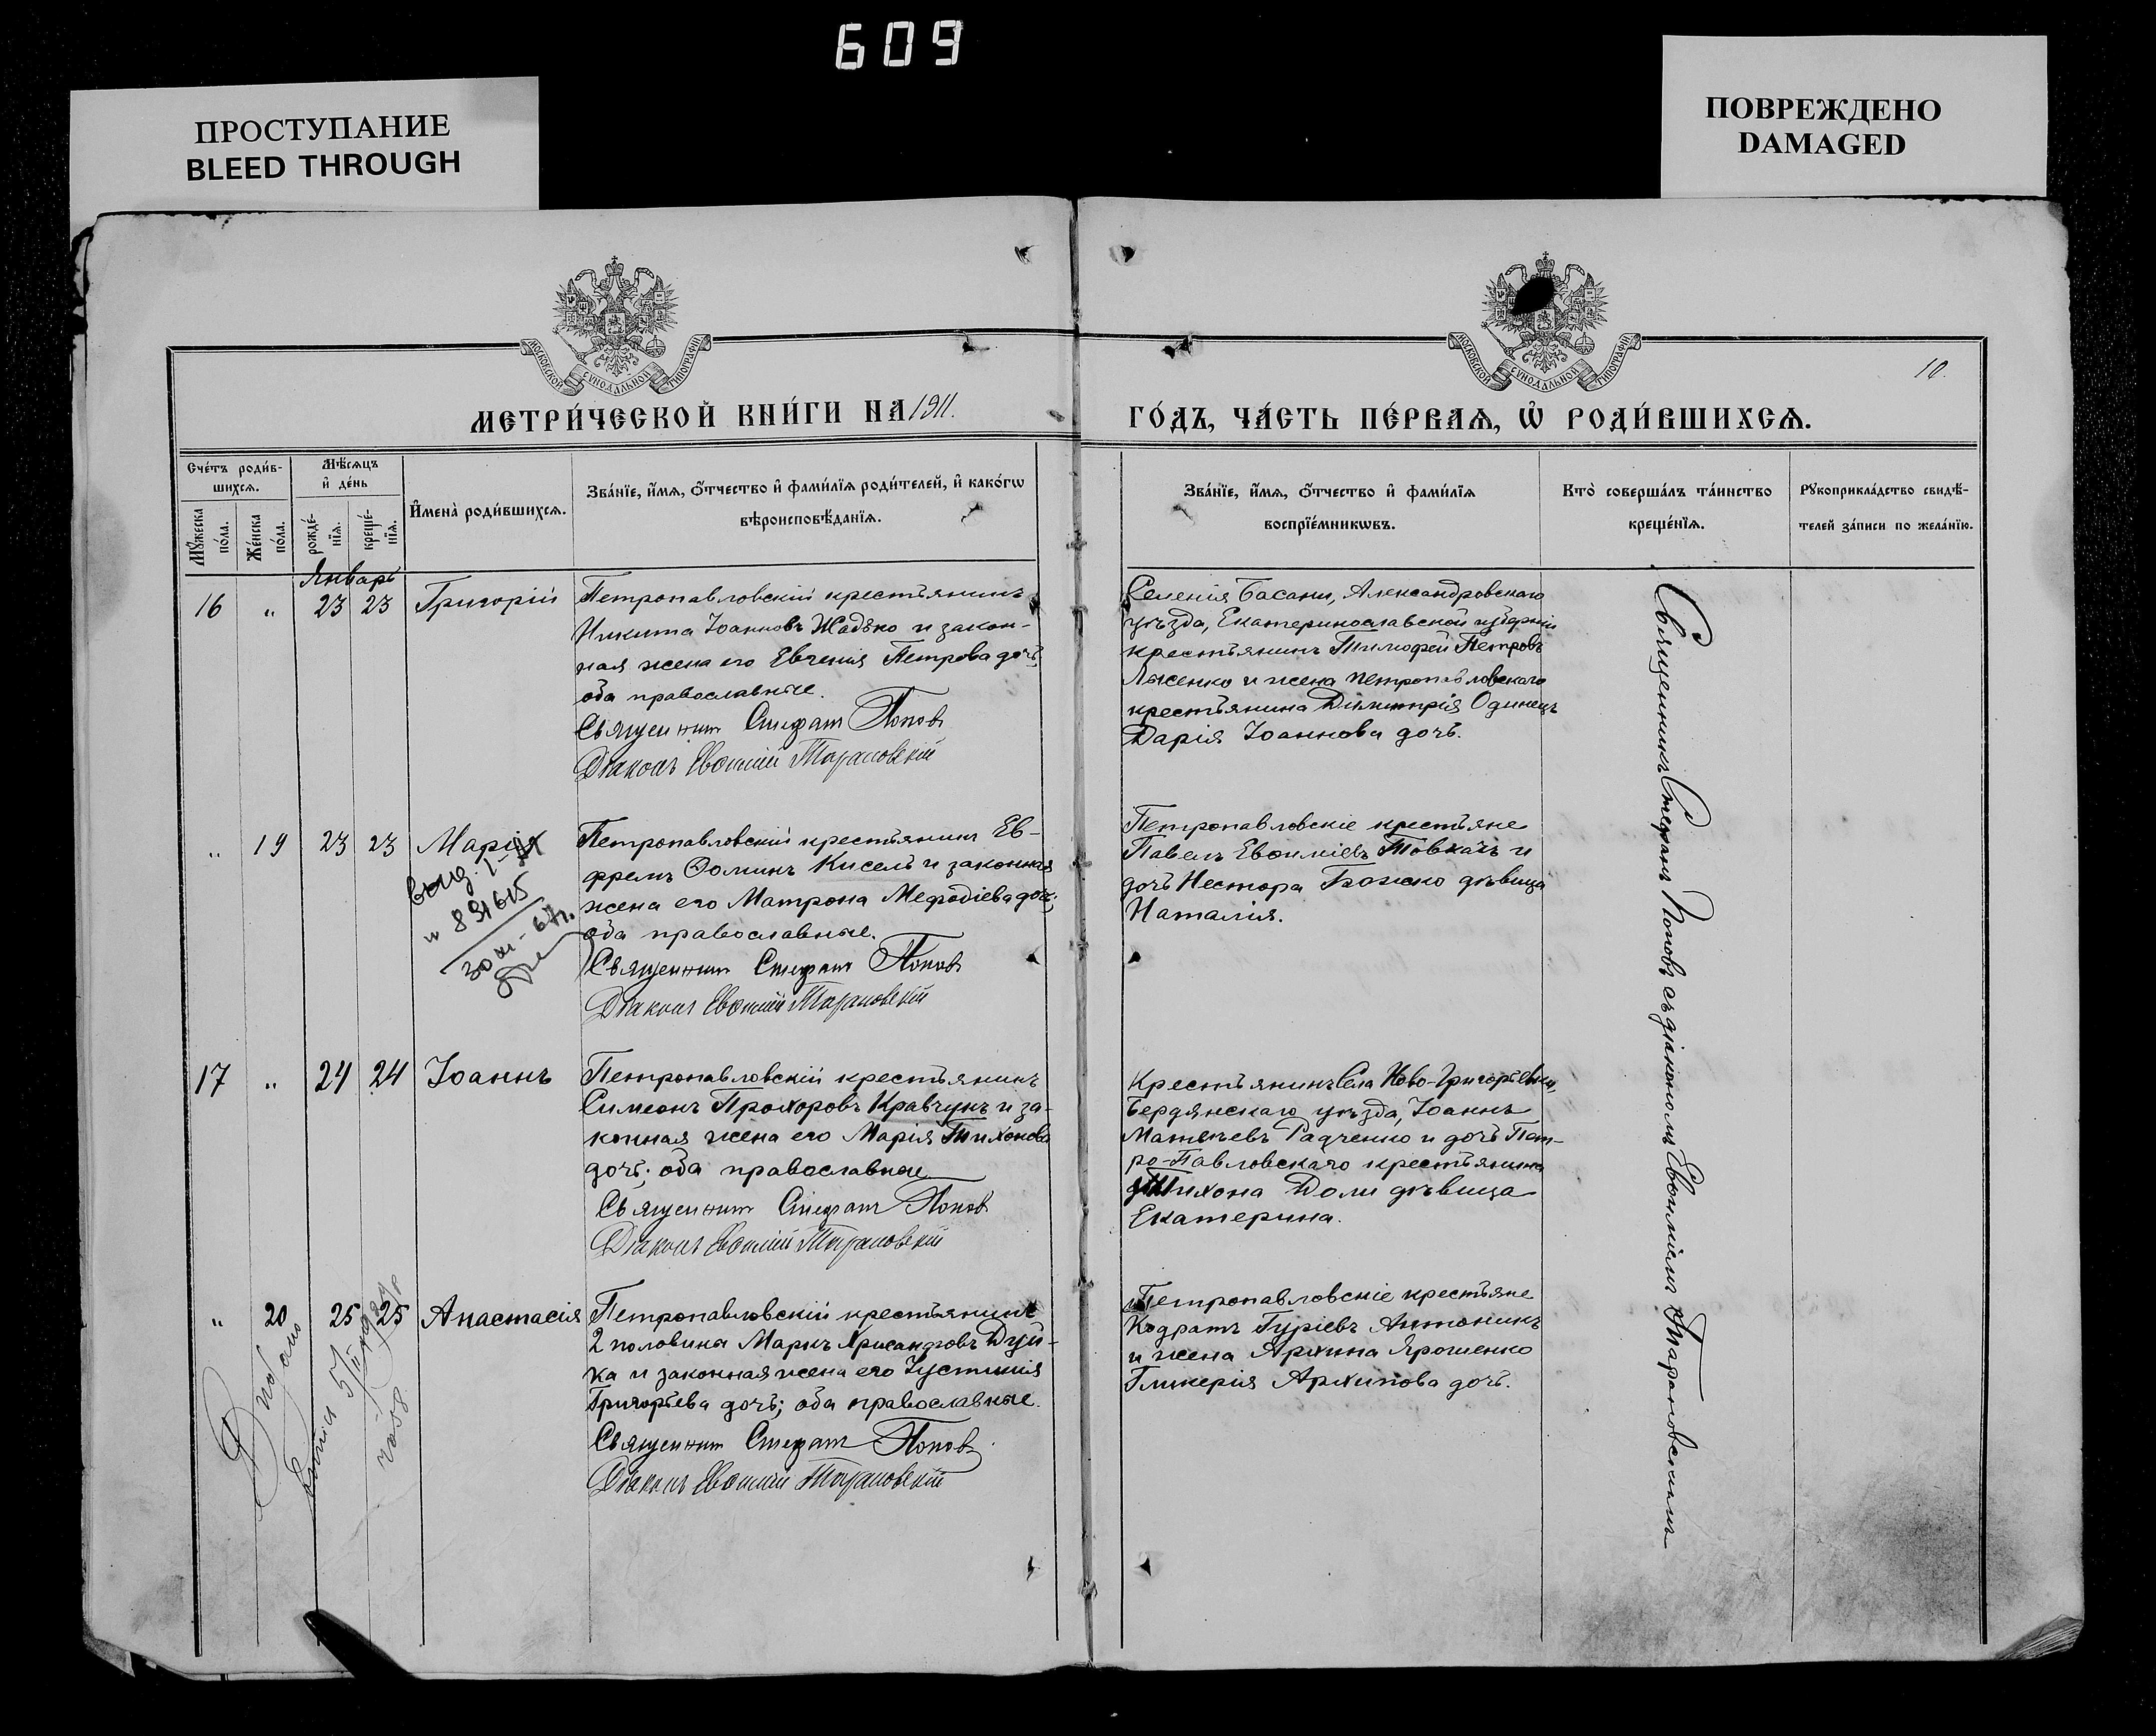 609
ПРОСТУПАНИЕ
BLEED THROUGH
ПОВРЕЖДЕНО
DAMAGED
МОСКОВСКОЙ СѴНОДАЛЬНОЙ ТИПОГРАФІИ
МОСКОВСКОЙ СѴНОДАЛЬНОЙ ТИПОГРАФІИ
10.
МЕТРИ́ЧЕСКОЙ КНИ́ГИ НА 1911.
ГО́ДЪ, ЧА́СТЬ ПЕ́РВАѦ, Ѡ҆ РОДИ́ВШИХСѦ.
Сче́тъ роди́в-
шихсѧ.
Мꙋ́жеска по́ла.
Же́нска по́ла.
Мѣ́сѧцъ
и҆ де́нь
рожде́-
нїѧ.
креще́-
нїѧ.
И҆мена̀ роди́вшихсѧ.
Зва́нїе, и҆́мѧ, ѻ҆́тчество и҆ фами́лїѧ роди́телей, и҆ како́гѡ
вѣроисповѣ́данїѧ.
Зва́нїе, и҆́мѧ, ѻ҆́тчество и҆ фами́лїѧ
воспрїе́мникѡвъ.
Кто̀ соверша́лъ та́инство
креще́нїѧ.
Рꙋкоприкла́дство свидѣ́-
телей за́писи по жела́нїю.
Январь
16 " 23 23 Григорій
Петропавловскій крестьянинъ
Никита Іоанновъ Жадько и закон-
ная жена его Евгенія Петрова дочь,
оба православные.
Священник Стефан Попов
Діаконъ Евѳимій Тарановскій
Селенія Басани, Александровскаго
уѣзда, Екатеринославской губерніи
крестьянинъ Тимофей Петровъ
Ляженко и жена петропавловскаго
крестьянина Димитрія Одинецъ
Дарія Іоаннова дочь.
" 19 23 23 Марія
выд.
н 891615
30 XI - 67г.
Петропавловскій крестьянинъ Ев-
фремъ Ѳоминъ Кисель и законная
жена его Матрона Мефодіева дочь;
оба православные.
Священник Стефан Попов
Діаконъ Евѳимій Тарановскій
Петропавловскіе крестьяне
Павелъ Евѳиміевъ Товкачъ и
дочь Нестора Божко дѣвица
Наталія.
17 " 24 24 Іоаннъ
Петропавловскій крестьянинъ
Симеонъ Прохоровъ Кравчунъ и за-
конная жена его Марія Тихонова
дочь; оба православные
Священник Стефан Попов
Діаконъ Евѳимій Тарановскій
Крестьянинъ Села Ново-Григорьевки,
Бердянскаго уѣзда, Іоаннъ
Матвѣевъ Радченко и дочь Пет-
ро-Павловскаго крестьянина
Тихона Доли дѣвица
Екатерина.
" 20 25 25 Анастасія
Петропавловскій крестьянинъ
2 половины Маркъ Хрисанфовъ Дуй-
ка и законная жена его Іустинія
Григорьева дочь; оба православные.
Священник Стефан Попов
Діаконъ Евѳимій Тарановскій
Петропавловскіе крестьяне
Кодратъ Гуріевъ Антоникъ
и жена Архипа Ярошенко
Гликерія Архипова дочь.
Священникъ Стефанъ Поповъ съ діакономъ Евѳиміемъ Тарановскимъ